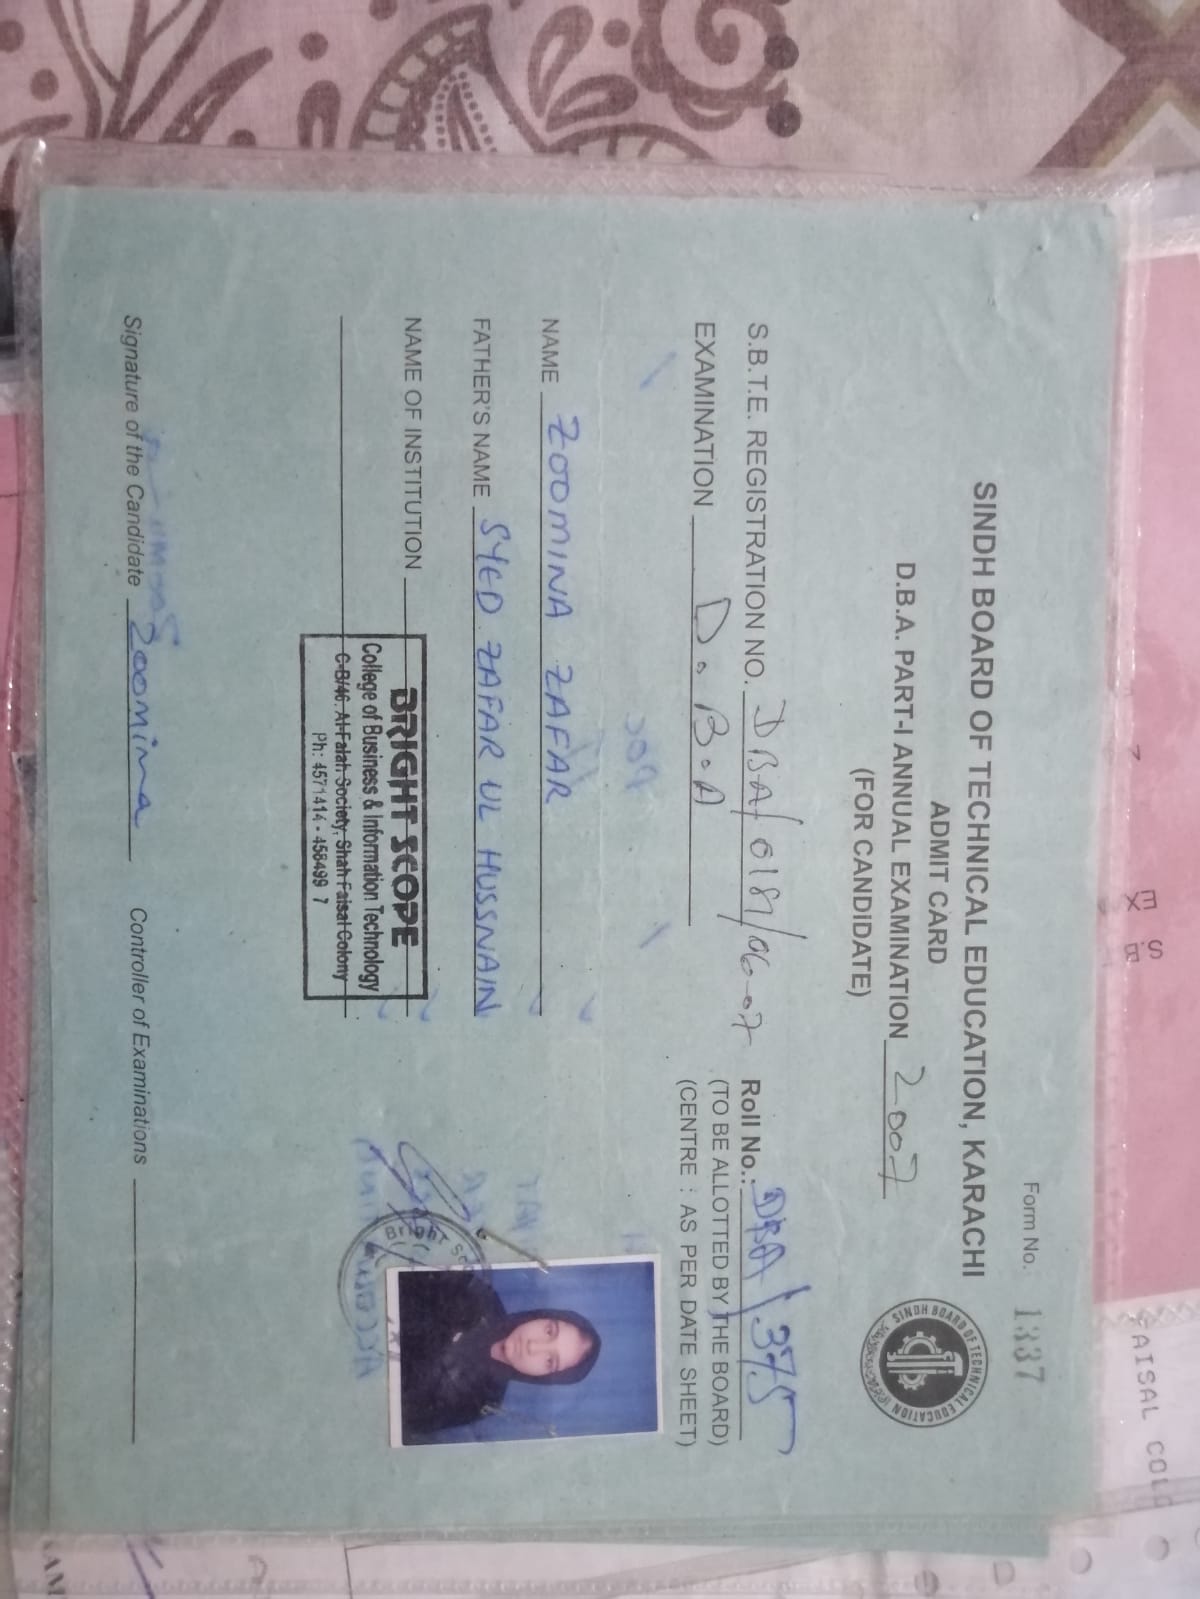 S.B
EX
AISAL COL
Form No. 1337
SINDH BOARD OF TECHNICAL EDUCATION, KARACHI
ADMIT CARD
D.B.A. PART-I ANNUAL EXAMINATION 2007
(FOR CANDIDATE)
SINDH BOARD OF TECHNICAL EDUCATION
S.B.T.E. REGISTRATION NO. DBA/0181/06-07
Roll No.: DBA/375
(TO BE ALLOTTED BY THE BOARD)
EXAMINATION D.B.A
(CENTRE : AS PER DATE SHEET)
NAME ZOOMINA ZAFAR
FATHER'S NAME SYED ZAFAR UL HUSSNAIN
NAME OF INSTITUTION
BRIGHT SCOPE
College of Business & Information Technology
C-B/46, Al-Falah Society, Shah Faisal Colony
Ph: 4571414 - 458499 7
Bright Sc
Signature of the Candidate Zoomina
Controller of Examinations